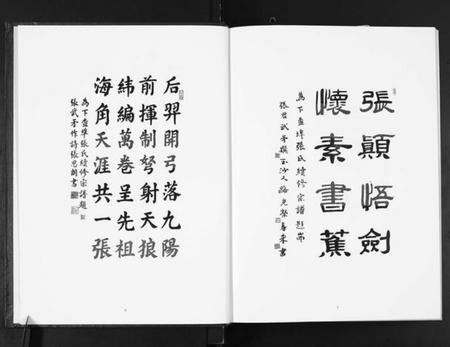 張顛悟劍
懷素書蕉
為下盘埠張氏續修宗譜題
張君武矛撰
后羿開弓落九陽
前揮制弩射天狼
緯編萬卷呈先祖
海角天涯共一張
為下盘埠張氏續修宗譜題
張武矛作詩張思朗書